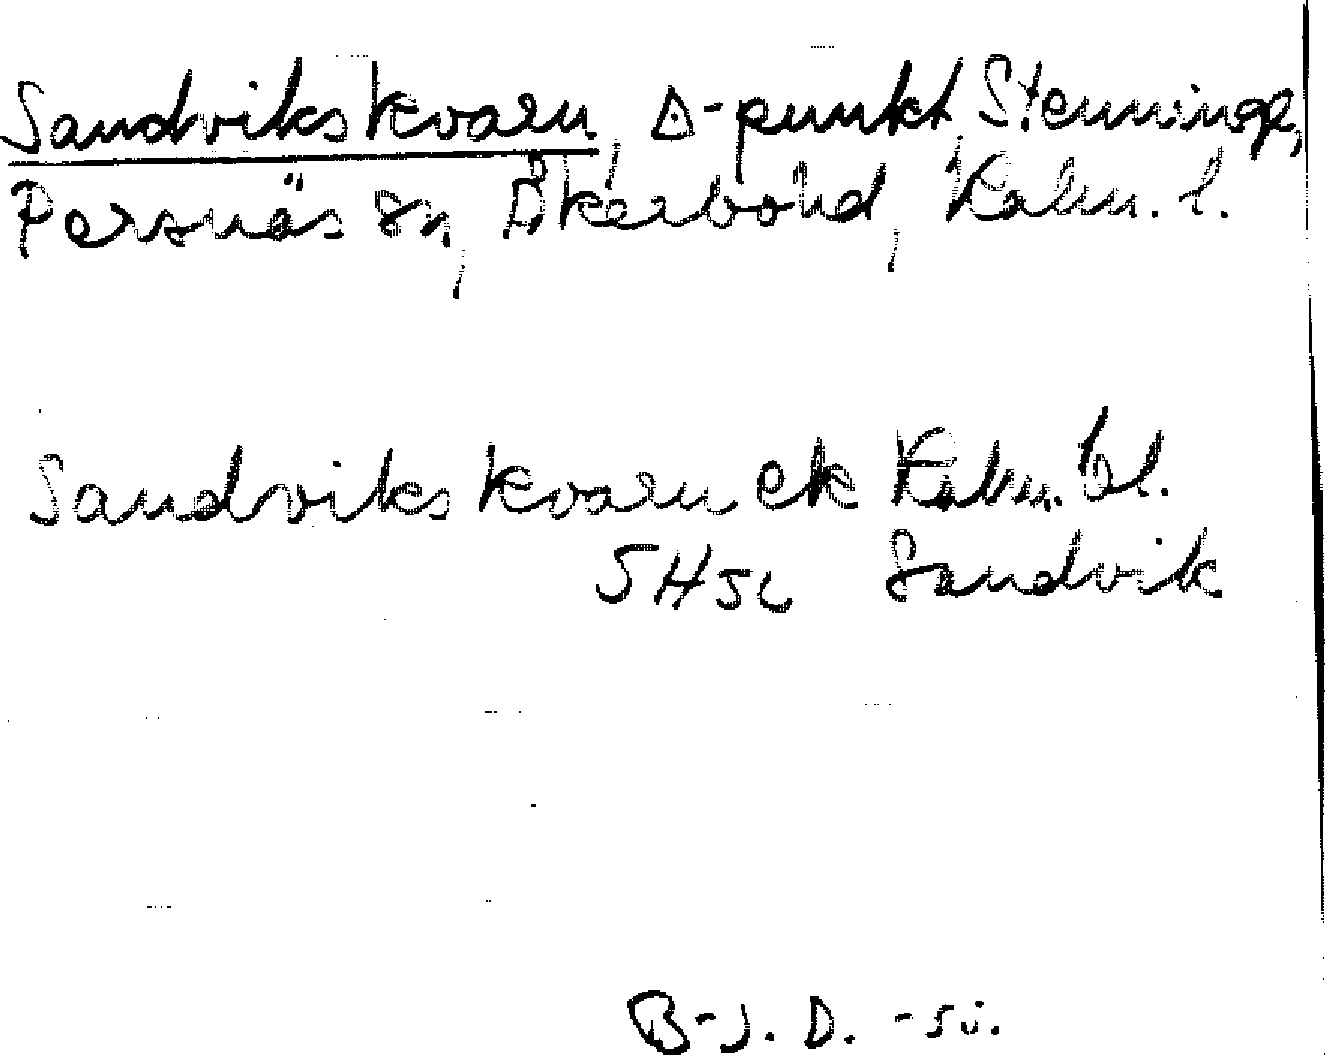 Sandvikskvarn, Δ-punkt, Stenninge,
Persnäs sn, Åkerbohd, Kalm. l.
Sandvikskvarn ek Kalm. bl.
5H5c Sandvik
B-J. D. -50.